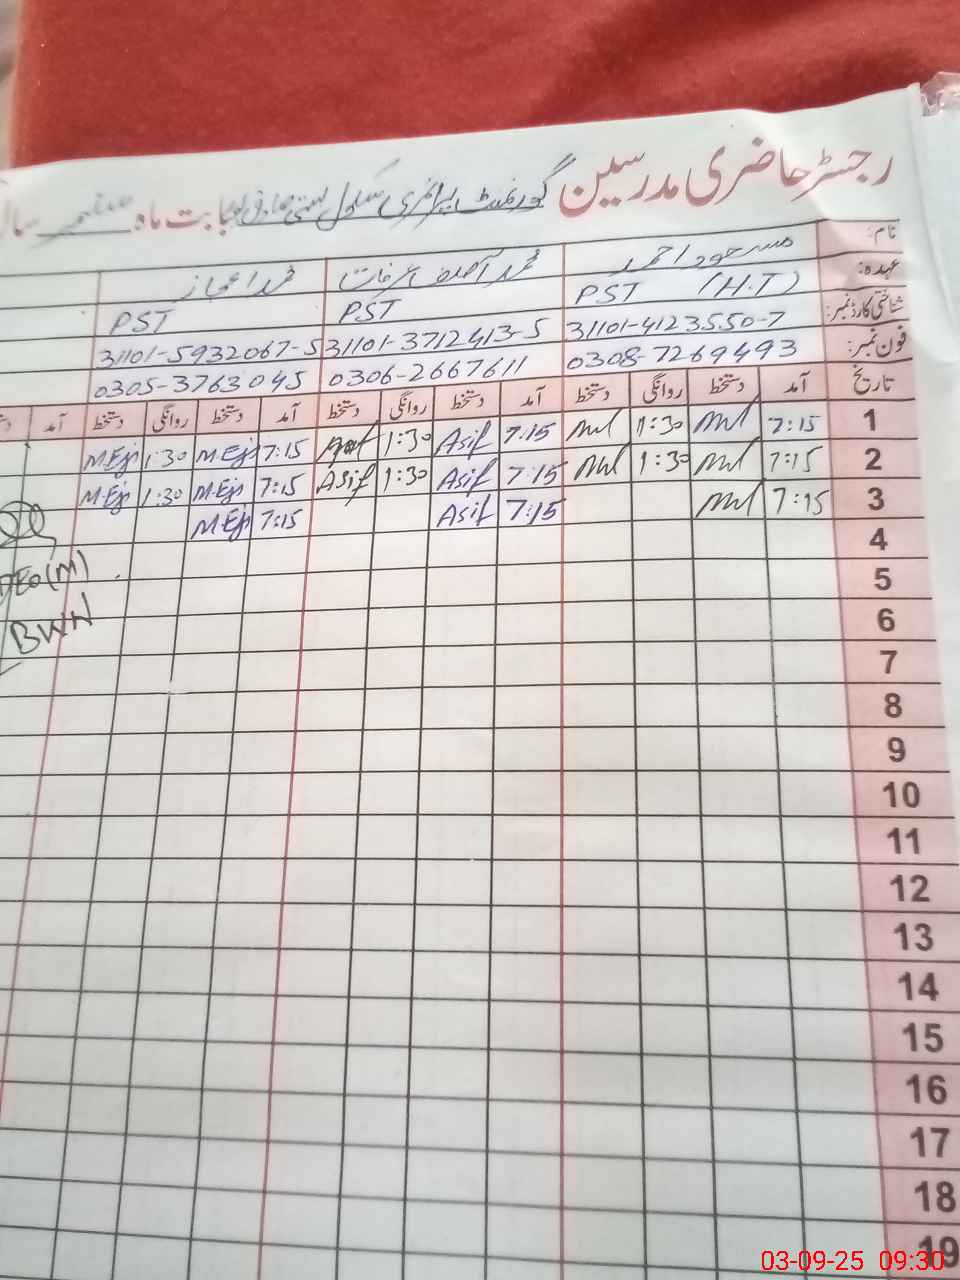 رجسٹر حاضری مدرسین گورنمنٹ پرائمری سکول بستی بابت ماہ ستمبر سال
نام: مسعود احمد محمد آصف عرفات محمد اعجاز
عہدہ: PST (H.T) PST PST
شناختی کارڈ نمبر: 31101-4123550-7 31101-3712413-5 31101-5932067-5
فون نمبر: 0308-7269493 0306-2667611 0305-3763045
تاریخ آمد دستخط روانگی دستخط آمد دستخط روانگی دستخط آمد دستخط روانگی دستخط آمد
1 7:15 1:30 7:15 Asif 1:30 7:15 M.Ejs 1:30 M.Ejs
2 7:15 1:30 7:15 Asif 1:30 Asif 7:15 M.Ejs 1:30 M.Ejs
3 7:15 7:15 Asif 7:15 M.Ejs
4
5
6
7
8
9
10
11
12
13
14
15
16
17
18
19
DEO(M)
BWN
03-09-25 09:30